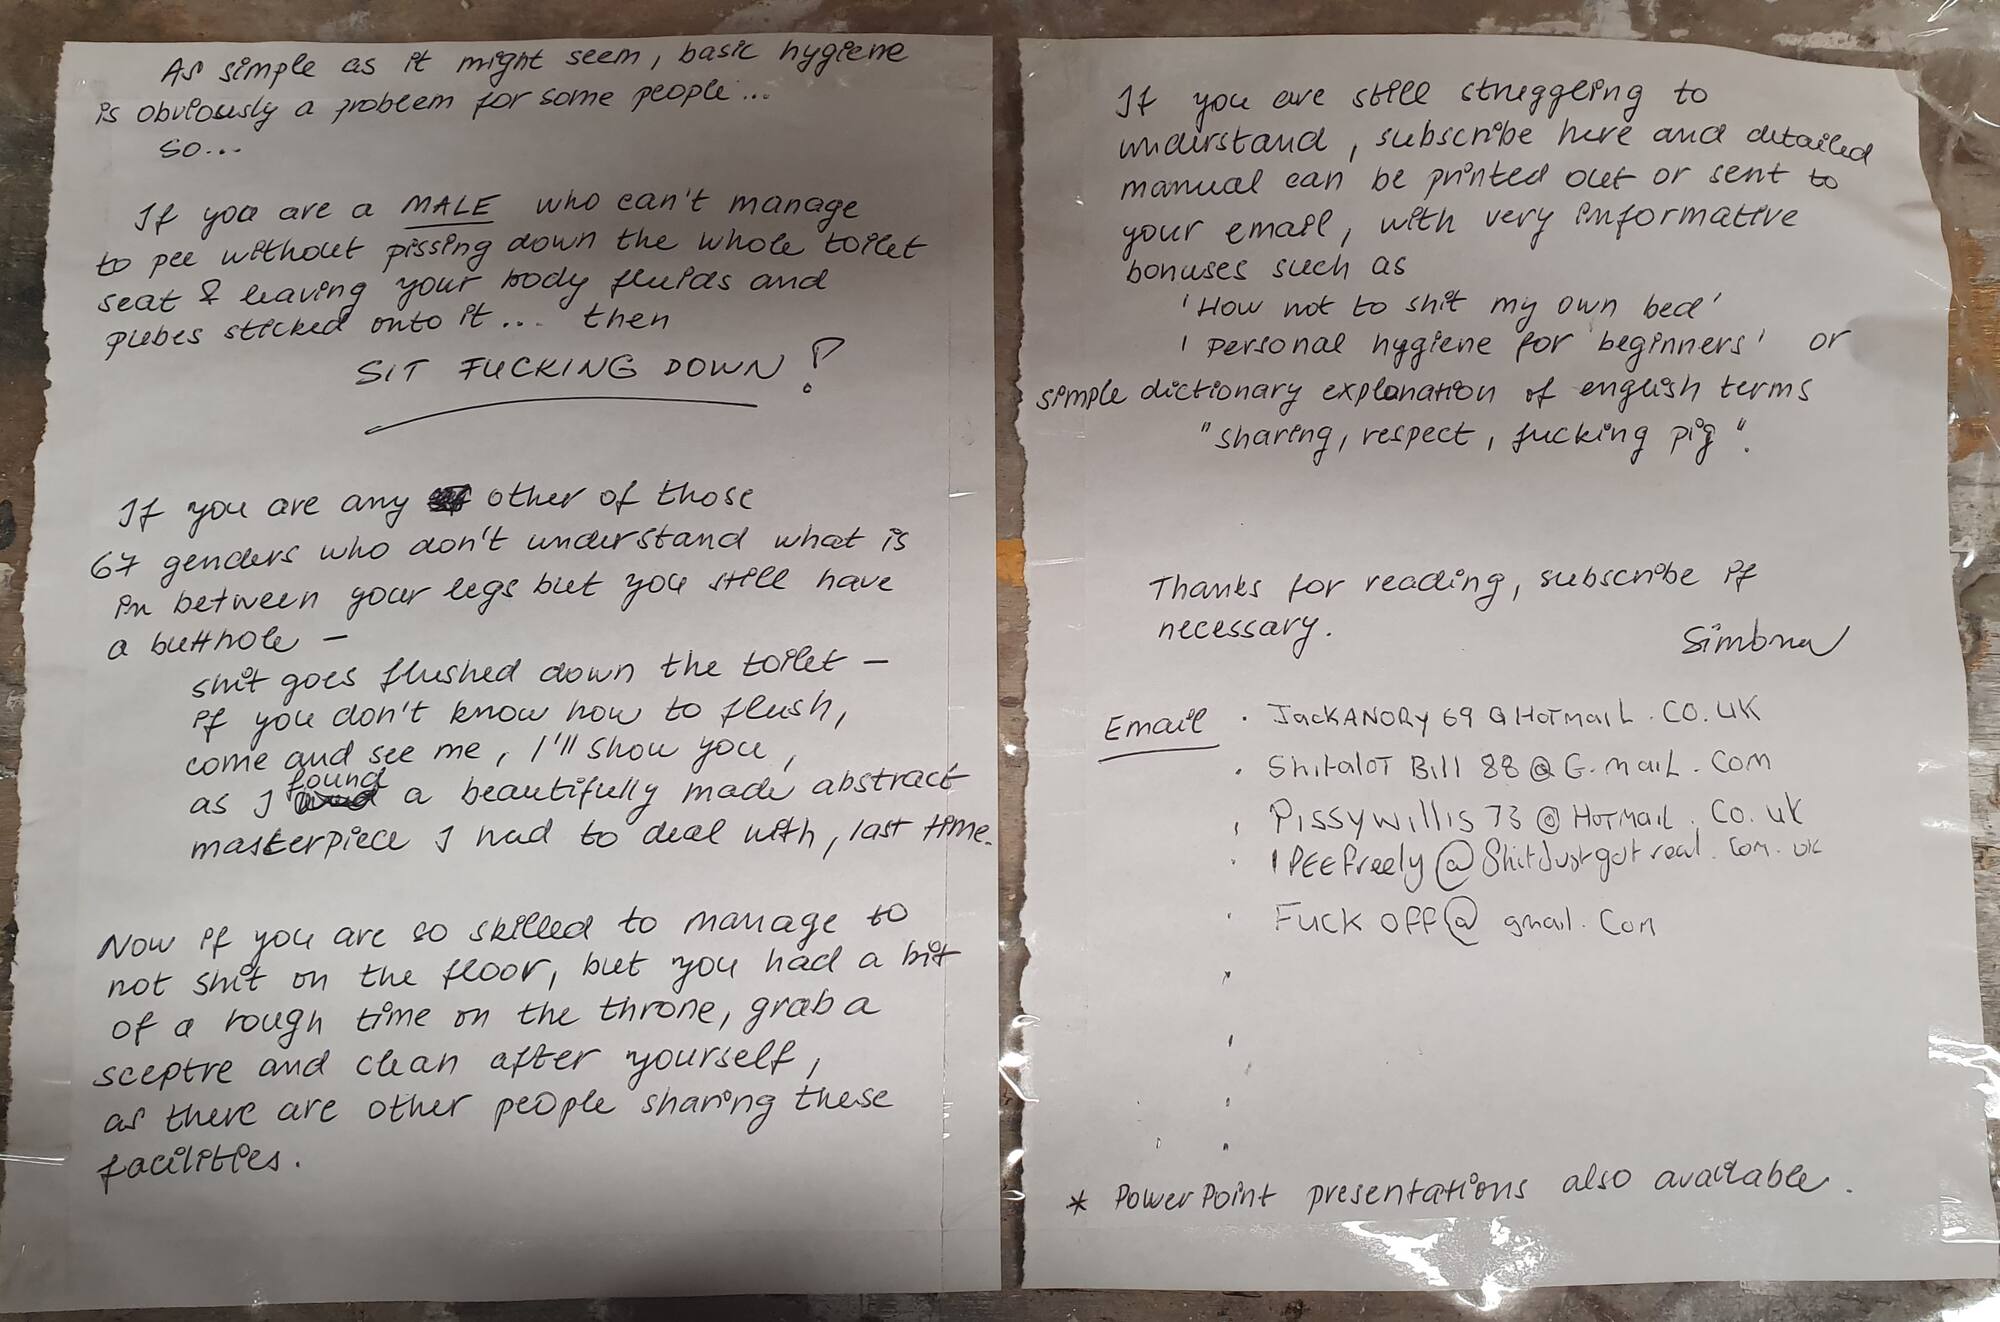 As simple as it might seem, basic hygiene
is obviously a problem for some people...
so...
If you are a MALE who can't manage
to pee without pissing down the whole toilet
seat & leaving your body fluids and
pubes sticked onto it... then
SIT FUCKING DOWN!
If you are any other of those
67 genders who don't understand what is
in between your legs but you still have
a butthole –
shit goes flushed down the toilet –
if you don't know how to flush,
come and see me, I'll show you,
as I found a beautifully made abstract
masterpiece I had to deal with, last time.
Now if you are so skilled to manage to
not shit on the floor, but you had a bit
of a rough time on the throne, grab a
sceptre and clean after yourself,
as there are other people sharing these
facilities.
If you are still struggling to
understand, subscribe here and detailed
manual can be printed out or sent to
your email, with very informative
bonuses such as
'How not to shit my own bed'
'Personal hygiene for beginners' or
simple dictionary explanation of english terms
"sharing, respect, fucking pig".
Thanks for reading, subscribe if
necessary.
Simona
Email · JackANORy69@HOTmaiL.CO.UK
· ShitaloT Bill 88@G.maiL.Com
· Pissywillis73@HoTMaiL.Co.uk
· IPEEfreely@ShitJustgotreal.Com.uk
· Fuck off@gmail.Com
* PowerPoint presentations also available.